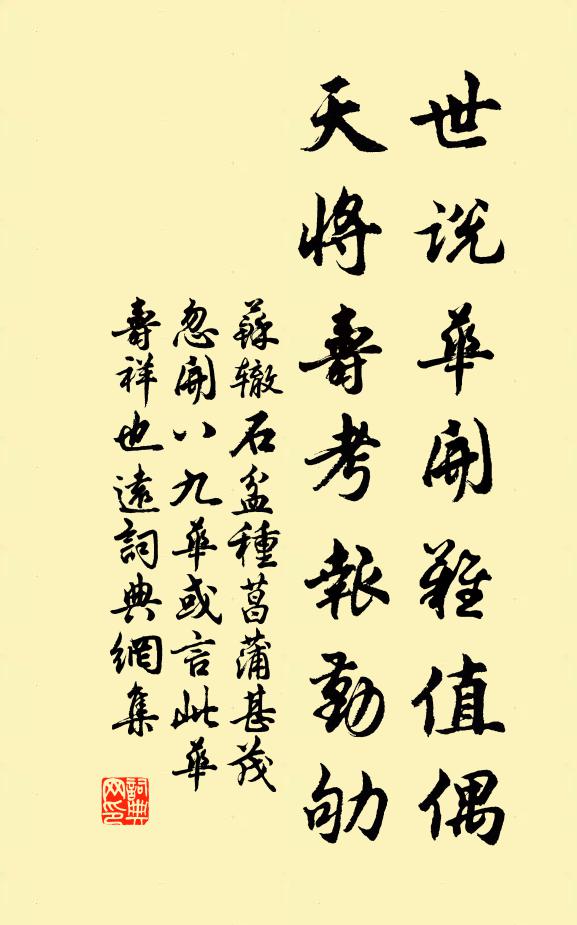 世說華開難值偶
天將壽考報勤劬
蘇轍石盆種菖蒲甚茂
忽開八九華或言此華
壽祥也遠詞典網集
詞典網印